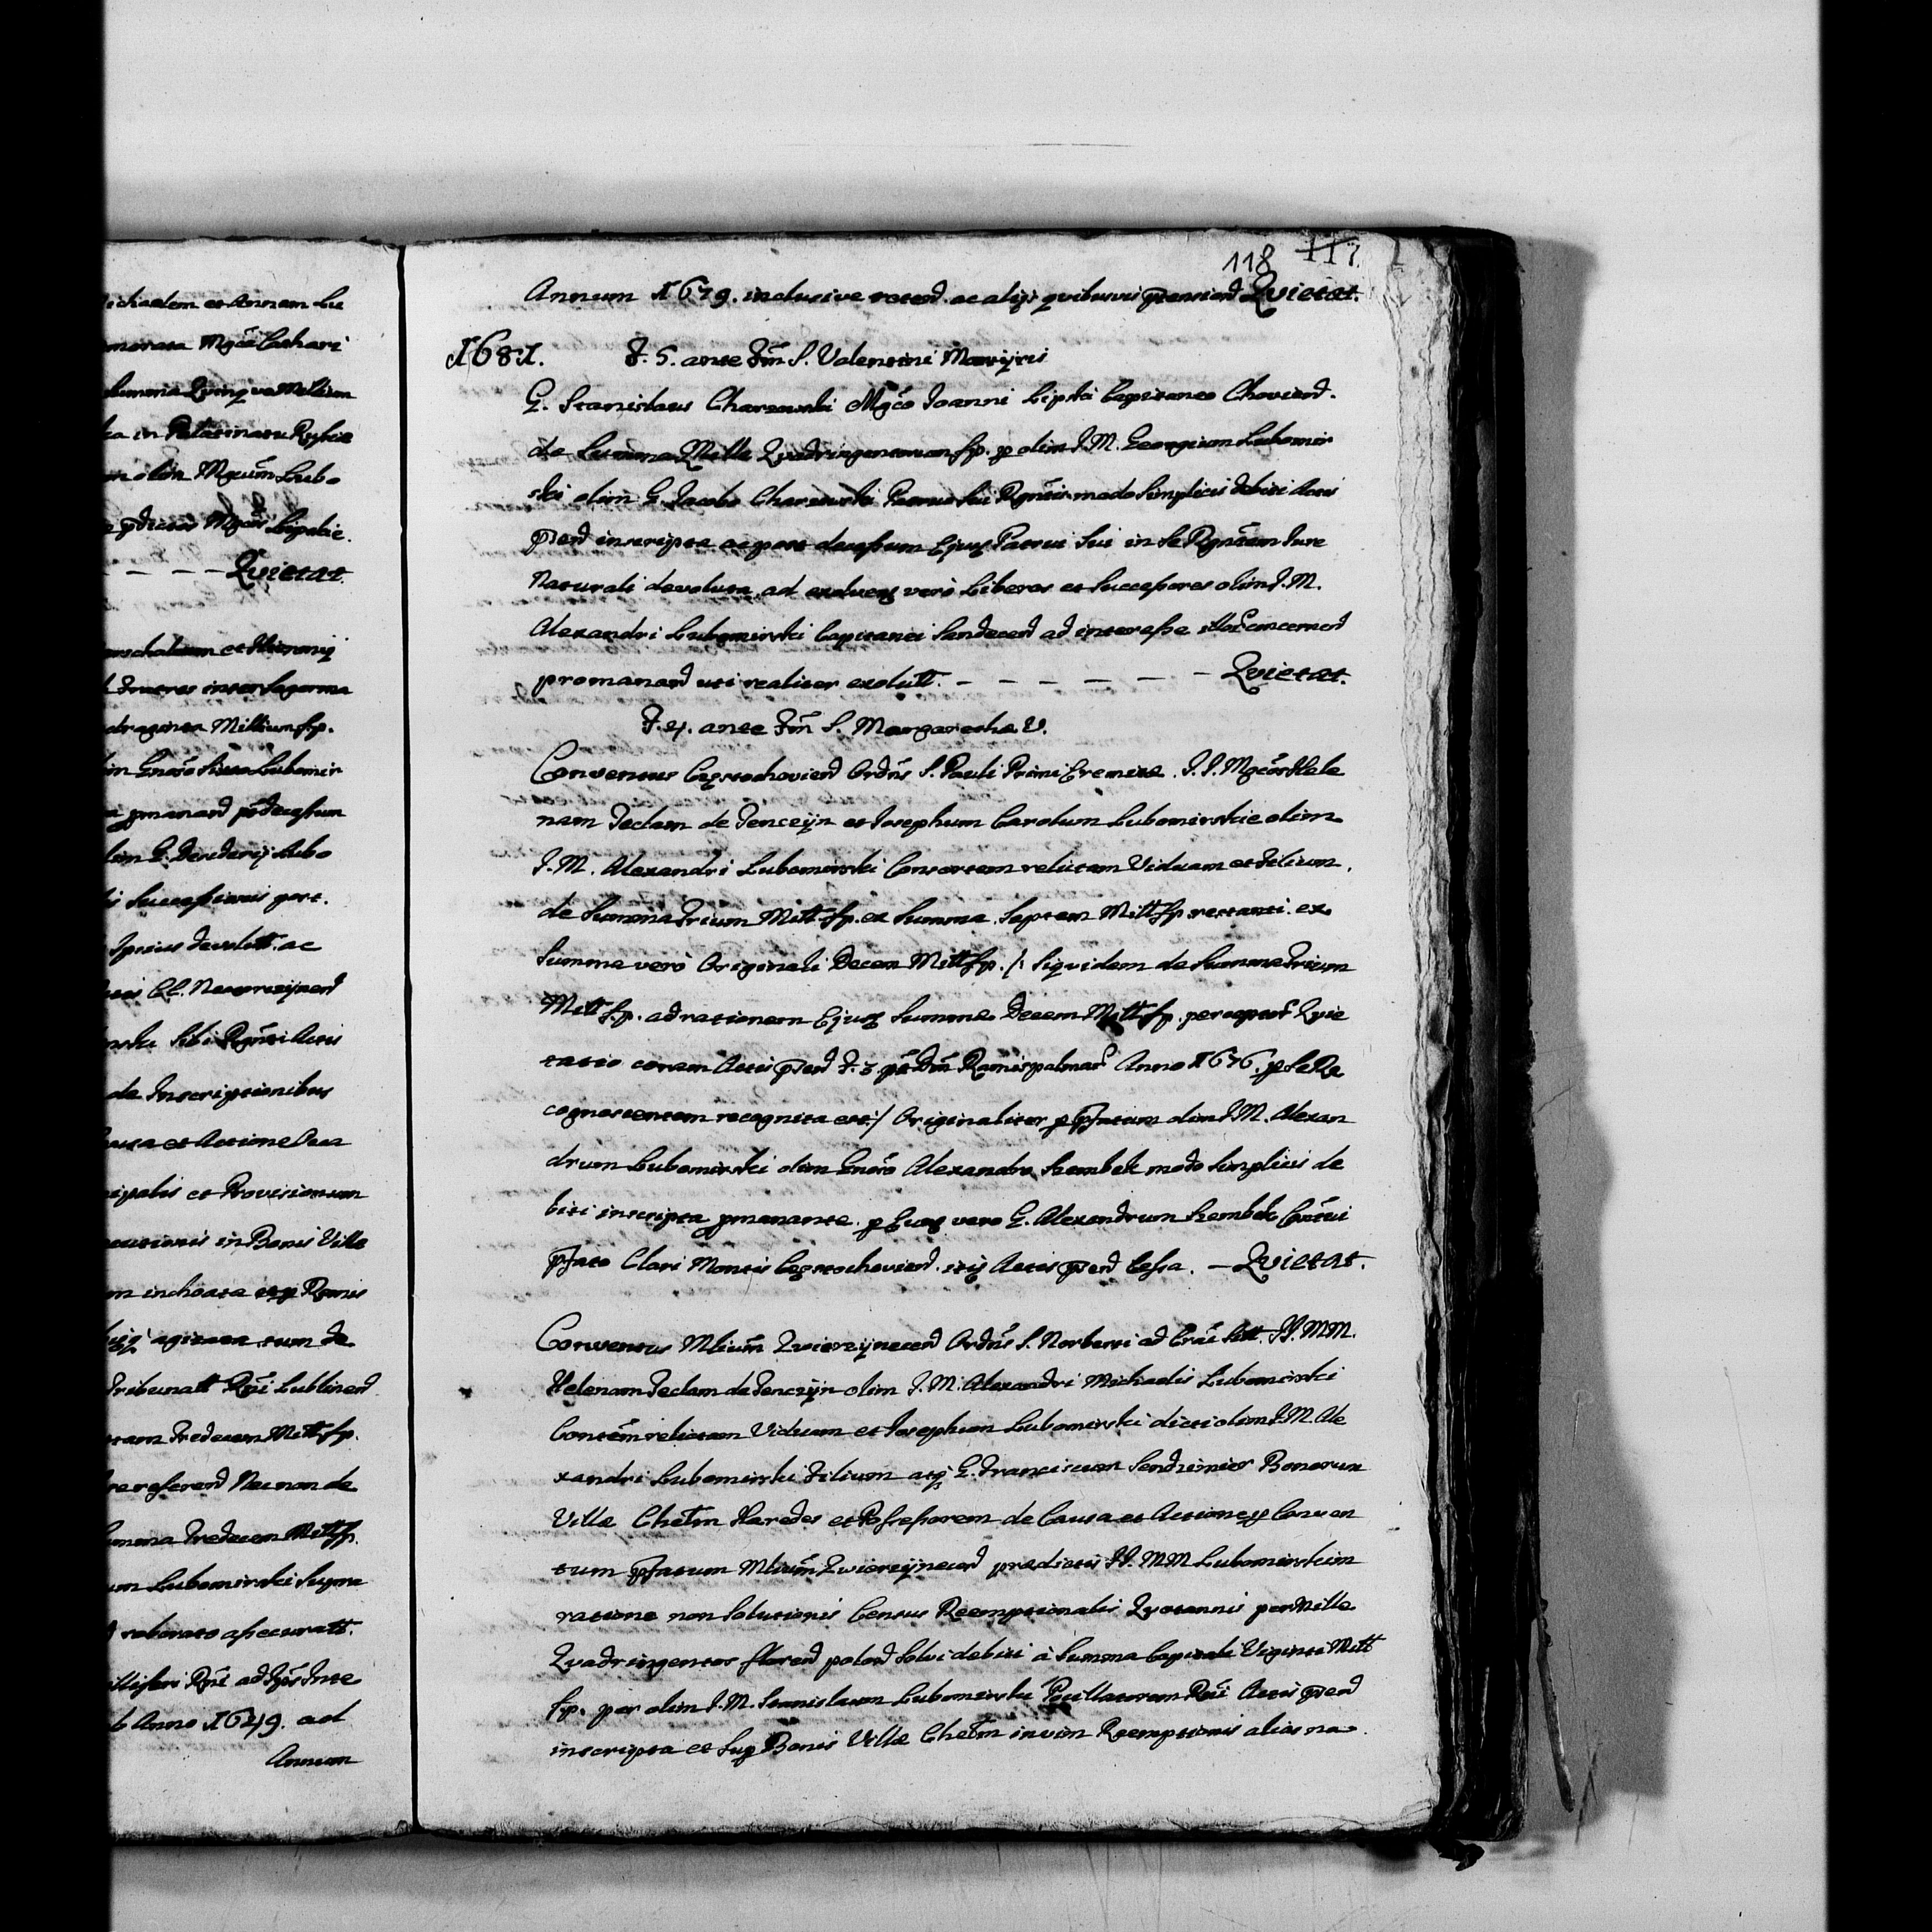 ichaelem et Annam Lu
morata Mgča Cathari
summa Quinque Millium
ta in Palatinatu Russie
olim Mgcum Lubo
pdictos Mgcos Lipskie.
Quietat.
et Hieronij
Fratres inter Sagorma
adraginta Millium fp.
im Gnoso Lubomir
pmanand post decessum
lim G. Desiderij Lubo
is Successionis port.
Ipsius devolutt. ac
Cl. Novomiejsend
nski Sibi Rgnti Actis
de Inscriptionibus
ausa et Actione
cipalis et Provisionum
ecutionis in Bonis Ville
m inchoata
agitata tum de
Tribunalt Rni Lublinend
tam Tredecem Mill fp.
re referend Necnon de
umma Tredecem Mill fp.
um Lubomirski Supra
roborato assecuratt.
Rni ad
b Anno 1649. ad
Annum
118 117.
Annum 1679. inclusive retend. ac alijs quibusvis ptensiond Quietat.
1681. F. 5. ante Fm S. Valentini Martyris
G. Stanislaus Charzewski Mgco Joanni Lipski Capitaneo Choviend.
de Summa Mille Quadringentorum fp. p olim I.M. Georgium Lubomir
ski olim G. Jacobo Charzewski Patruo Sui Rgntis modo Simplicis debiti Actis
pnd inscripta ac post decessum Ejusq Patrui Sui in Se Rgntem Jure
Naturali devoluta, ad exolvens vero Liberos et Successores olim I.M.
Alexandri Lubomirski Capitanei Sandecend ad interesse illor concernend
promanand uti realiter exolutt. - - - - - - - Quietat.
F. 4. ante Fm S. Margarethæ V.
Conventus Częstochoviend Ordns S. Pauli Primi Eremitæ. I.I. Mgcos Hele
nam Teclam de Tenczyn et Josephum Carolum Lubomirskie olim
I.M. Alexandri Lubomirski Consortem relictam Viduam et Filium.
de Summa Trium Mill fp. ex Summa Septem Mill fp restanti. ex
Summa vero Originali Decem Mill fp. /: Siquidem de Summa Trium
Mill fp. ad rationem Ejusq Summe Decem Mill fp. percept Quie
tatio coram Actis pnd F. 3. pt Dm Ramispalmar Anno 1676. p Se Re
cognoscentem recognita est:/ Originaliter p pfatum olim I.M. Alexan
drum Lubomirski olim Gnoso Alexandro Szembek modo Simplicis de
biti inscripta pmanante. p Eunq vero G. Alexandrum Szembek Convtui
pfato Clari Montis Częstochoviend. itij Actis pnd Cessa. - Quietat.
Conventus Mlium Zwierzynecend Ordns S. Norberti ad Crac Sitt. II. MM.
Helenam Teclam de Tenczyn olim I.M. Alexandri Michaelis Lubomirski
Contem relictam Viduam et Josephum Lubomirski dicti olim I.M. Ale
xandri Lubomirski Filium atq G. Franciscum Sendzimier Bonorum
Villæ Chełm Hæredes et Possessorem de Causa et Actione p Conven
tum pfatum Mlium Zwierzynecend prædictis II. MM Lubomirskim
ratione non Solutionis Census Reemptionalis Quotannis per Mille
Quadringentos florend polond Solvi debiti à Summa Capitali Viginti Mill
fp. per olim I.M. Stanislaum Lubomirski Pocillatorem Rni Actis pnd
inscripta et Sup Bonis Villæ Chełm in vim Reemptionis alias na